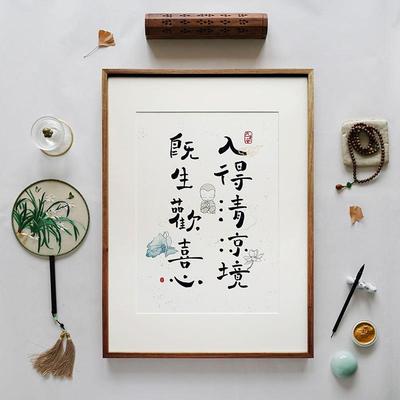 入得清凉境
既生歡喜心